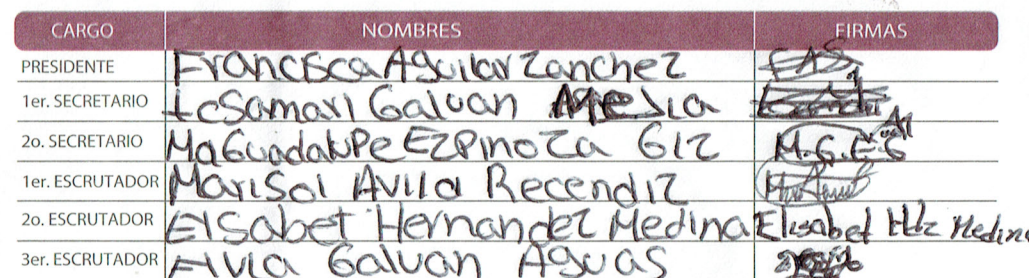 CARGO NOMBRES FIRMAS
PRESIDENTE Francisca Aguilar Zanchez FAS
1er. SECRETARIO Galvan
2o. SECRETARIO Ma Guadalupe Ezpinoza G12 M.G.E.S
1er. ESCRUTADOR Marisol Avila Recendiz
2o. ESCRUTADOR Elsabet Hernandez Medina Elisabet Hdz Medina
3er. ESCRUTADOR Elvia Galvan Aguas